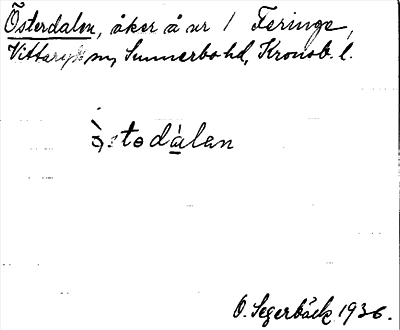 Österdalen, åker å nr 1 Feringe,
Vittaryds sn, Sunnerbo hd, Kronob. l.
östodàlan
O. Segerbäck 1936.